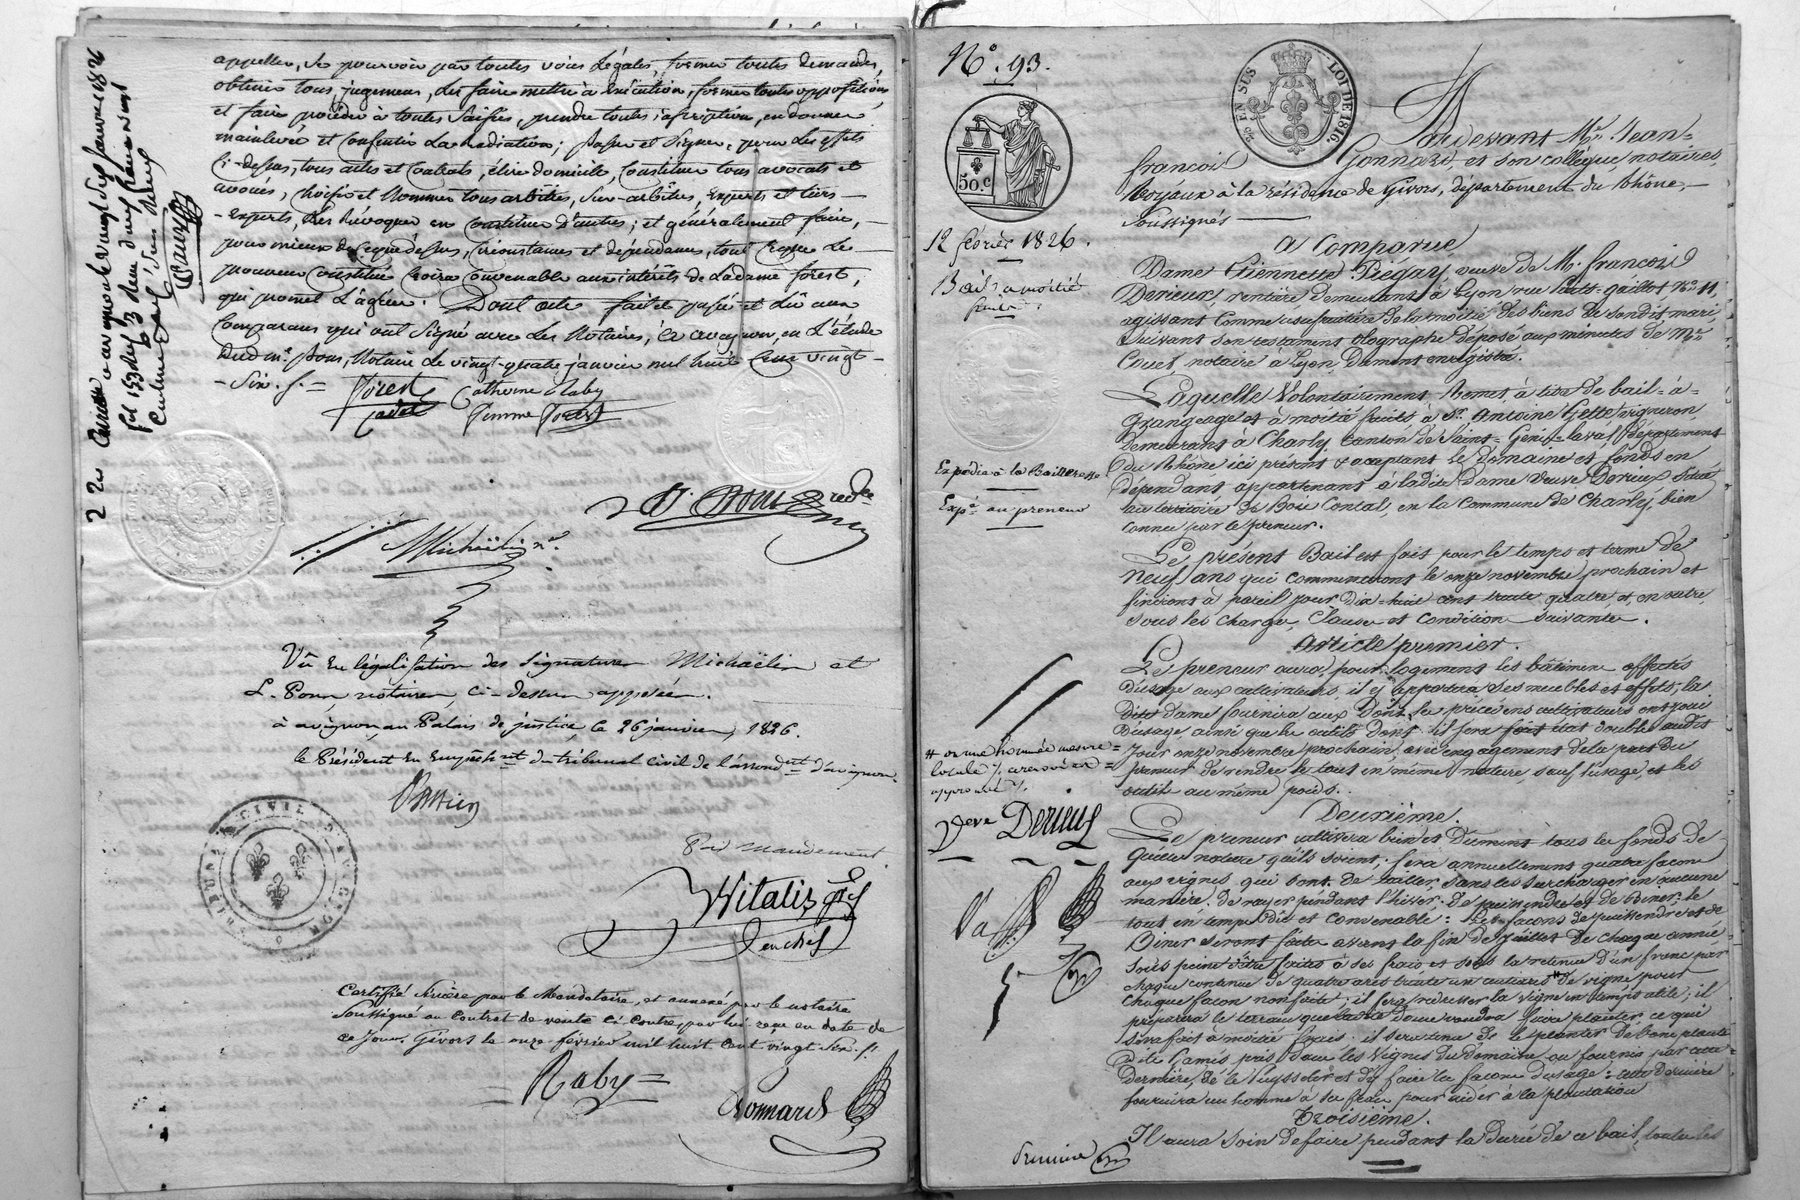 appeller, se pourvoir par toutes voies légales, former toutes demandes,
obtenir tous jugemens, les faire mettre à exécution, former toutes oppositions
et faire procéder à toutes saisies, prendre toutes inscriptions, en donner
mainlevée et consentir la radiation; passer et signer, pour les effets
ci-dessus, tous actes et contrats, élire domicile, constituer tous avocats et
avoués, choisir et nommer tous arbitres, sur-arbitres, experts et tiers-
-experts, les révoquer en constituer d'autres; et généralement faire,
pour mieux de ce que dessus, circonstances et dépendances, tout ce que le
procureur constitué croira convenable aux intérêts de la dame forest,
qui promet l'agréer. Dont acte fait et passé et lû aux
comparans qui ont signé avec les Notaires, à avignon, en l'étude
dud. me. pons, Notaire le vingt-quatre janvier mil huit cent vingt-
-six. /. =
Forest
cadet
Catherine Raby
femme Forest
22
1826
L. Pons
Michaëlin nre.
Vu en légalisation des signatures Michaëlin et
L. Pons, notaires, ci-dessus apposées.
à avignon, au Palais de justice, le 26 janvier 1826.
le Président en empêchmt du tribunal civil de l'arrondt d'avignon.
Par mandement
Vitalis
Certifié sincère par le Mandataire, et annexé par le notaire
soussigné au contrat de vente ci contre, par lui reçu en date de
ce jour. Givors le onze février mil huit cent vingt six. /.
= Raby =
Gonnard
N° 93.
50.c
2s EN SUS
LOI DE 1816.
12 février 1826.
Bail à moitié
fruits.
Expédié à la Bailleresse
Expé. au preneur
Pardevant Me. Jean-
françois Gonnard, et son collègue, notaires,
Royaux à la résidence de Givors, département du Rhône,
soussignés
A Comparue
Dame Etiennette Piégay, veuve de Mr. françois
Derieux, rentière demeurant à Lyon rue Puits-gaillot, No. 11,
agissant comme usufruitière de la moitié des biens de sondit mari
suivant son testament olographe déposé aux minutes de Me.
Coues, notaire à Lyon, Dument enregistré.
Laquelle Volontairement Remet, à titre de bail-à-
Grangeage et à moitié fruits à Sr. Antoine Gette vigneron
demeurant à Charly, canton de Saint-Genis-laval, département
du Rhône ici présent & acceptant le Domaine et fonds en
dépendant appartenant à ladite Dame veuve Derieux situés
au territoire de Bois Contal, en la Commune de Charly, bien
connu par le preneur.
Le présent Bail est fait pour le temps et terme de
neuf ans qui commenceront le onze novembre prochain et
finiront à pareil jour dix-huit cent trente quatre et, en outre,
sous les charges, Clauses et conditions suivantes.
Article premier.
Le preneur aura pour logement les bâtimens affectés
d'usage aux cultivateurs, il y apportera ses meubles et effets; la
dite dame fournira aux Dont. le prix
d'usage, ainsi que les outils dont il sera fait état double audit
jour onze novembre prochain, avec engagement de la part du
preneur de rendre le tout en même nature, sauf l'usage, et les
outils au même poids.
# ou une hommée mesure =
locale /. renvoi =
approuvé /.
Veve Derieux
Deuxième.
Le preneur cultivera bien et dument tous les fonds de
quelle nature qu'ils soient; fera annuellement quatre façons
aux vignes, qui sont: de tailler, sans les surcharger en aucune
manière, de rayer pendant l'hiver, de puissendre et de biner, le
tout en temps dû et convenable: les façons de puissendre et de
Biner seront faites avant la fin de juillet de chaque année
sous peine d'être faites à ses frais et sous la retenue d'un franc par
chaque contenue de quatre ares trente un centiares # de vigne pour
chaque façon non faite; il fera redresser la vigne en temps utile; il
préparera le terrain que ladite dame voudra faire planter ce qui
sera fait à moitié frais: il sera tenu de le planter de bons plants
de Gamis pris dans les Vignes du domaine, ou fournis par cette
dernière, de le et d'y faire la façon d'usage: cette dernière
fournira un homme à ses frais pour aider à la plantation
Troisième.
Il aura soin de faire pendant la Durée de ce bail, toutes les
Premier